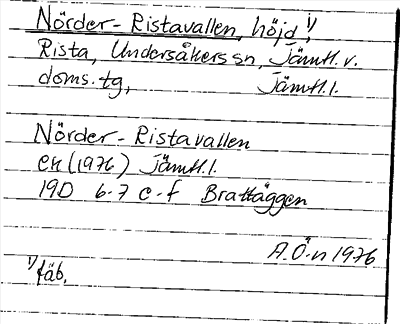 Nörder-Ristavallen, höjd 1),
Rista, Undersåkers sn, Jämtl. v.
doms. tg, Jämtl. l.
Nörder-Ristavallen
ek (1976) Jämtl. l.
19D 6-7 e-f Brattäggen
A.Ö-n 1976
1) fäb.